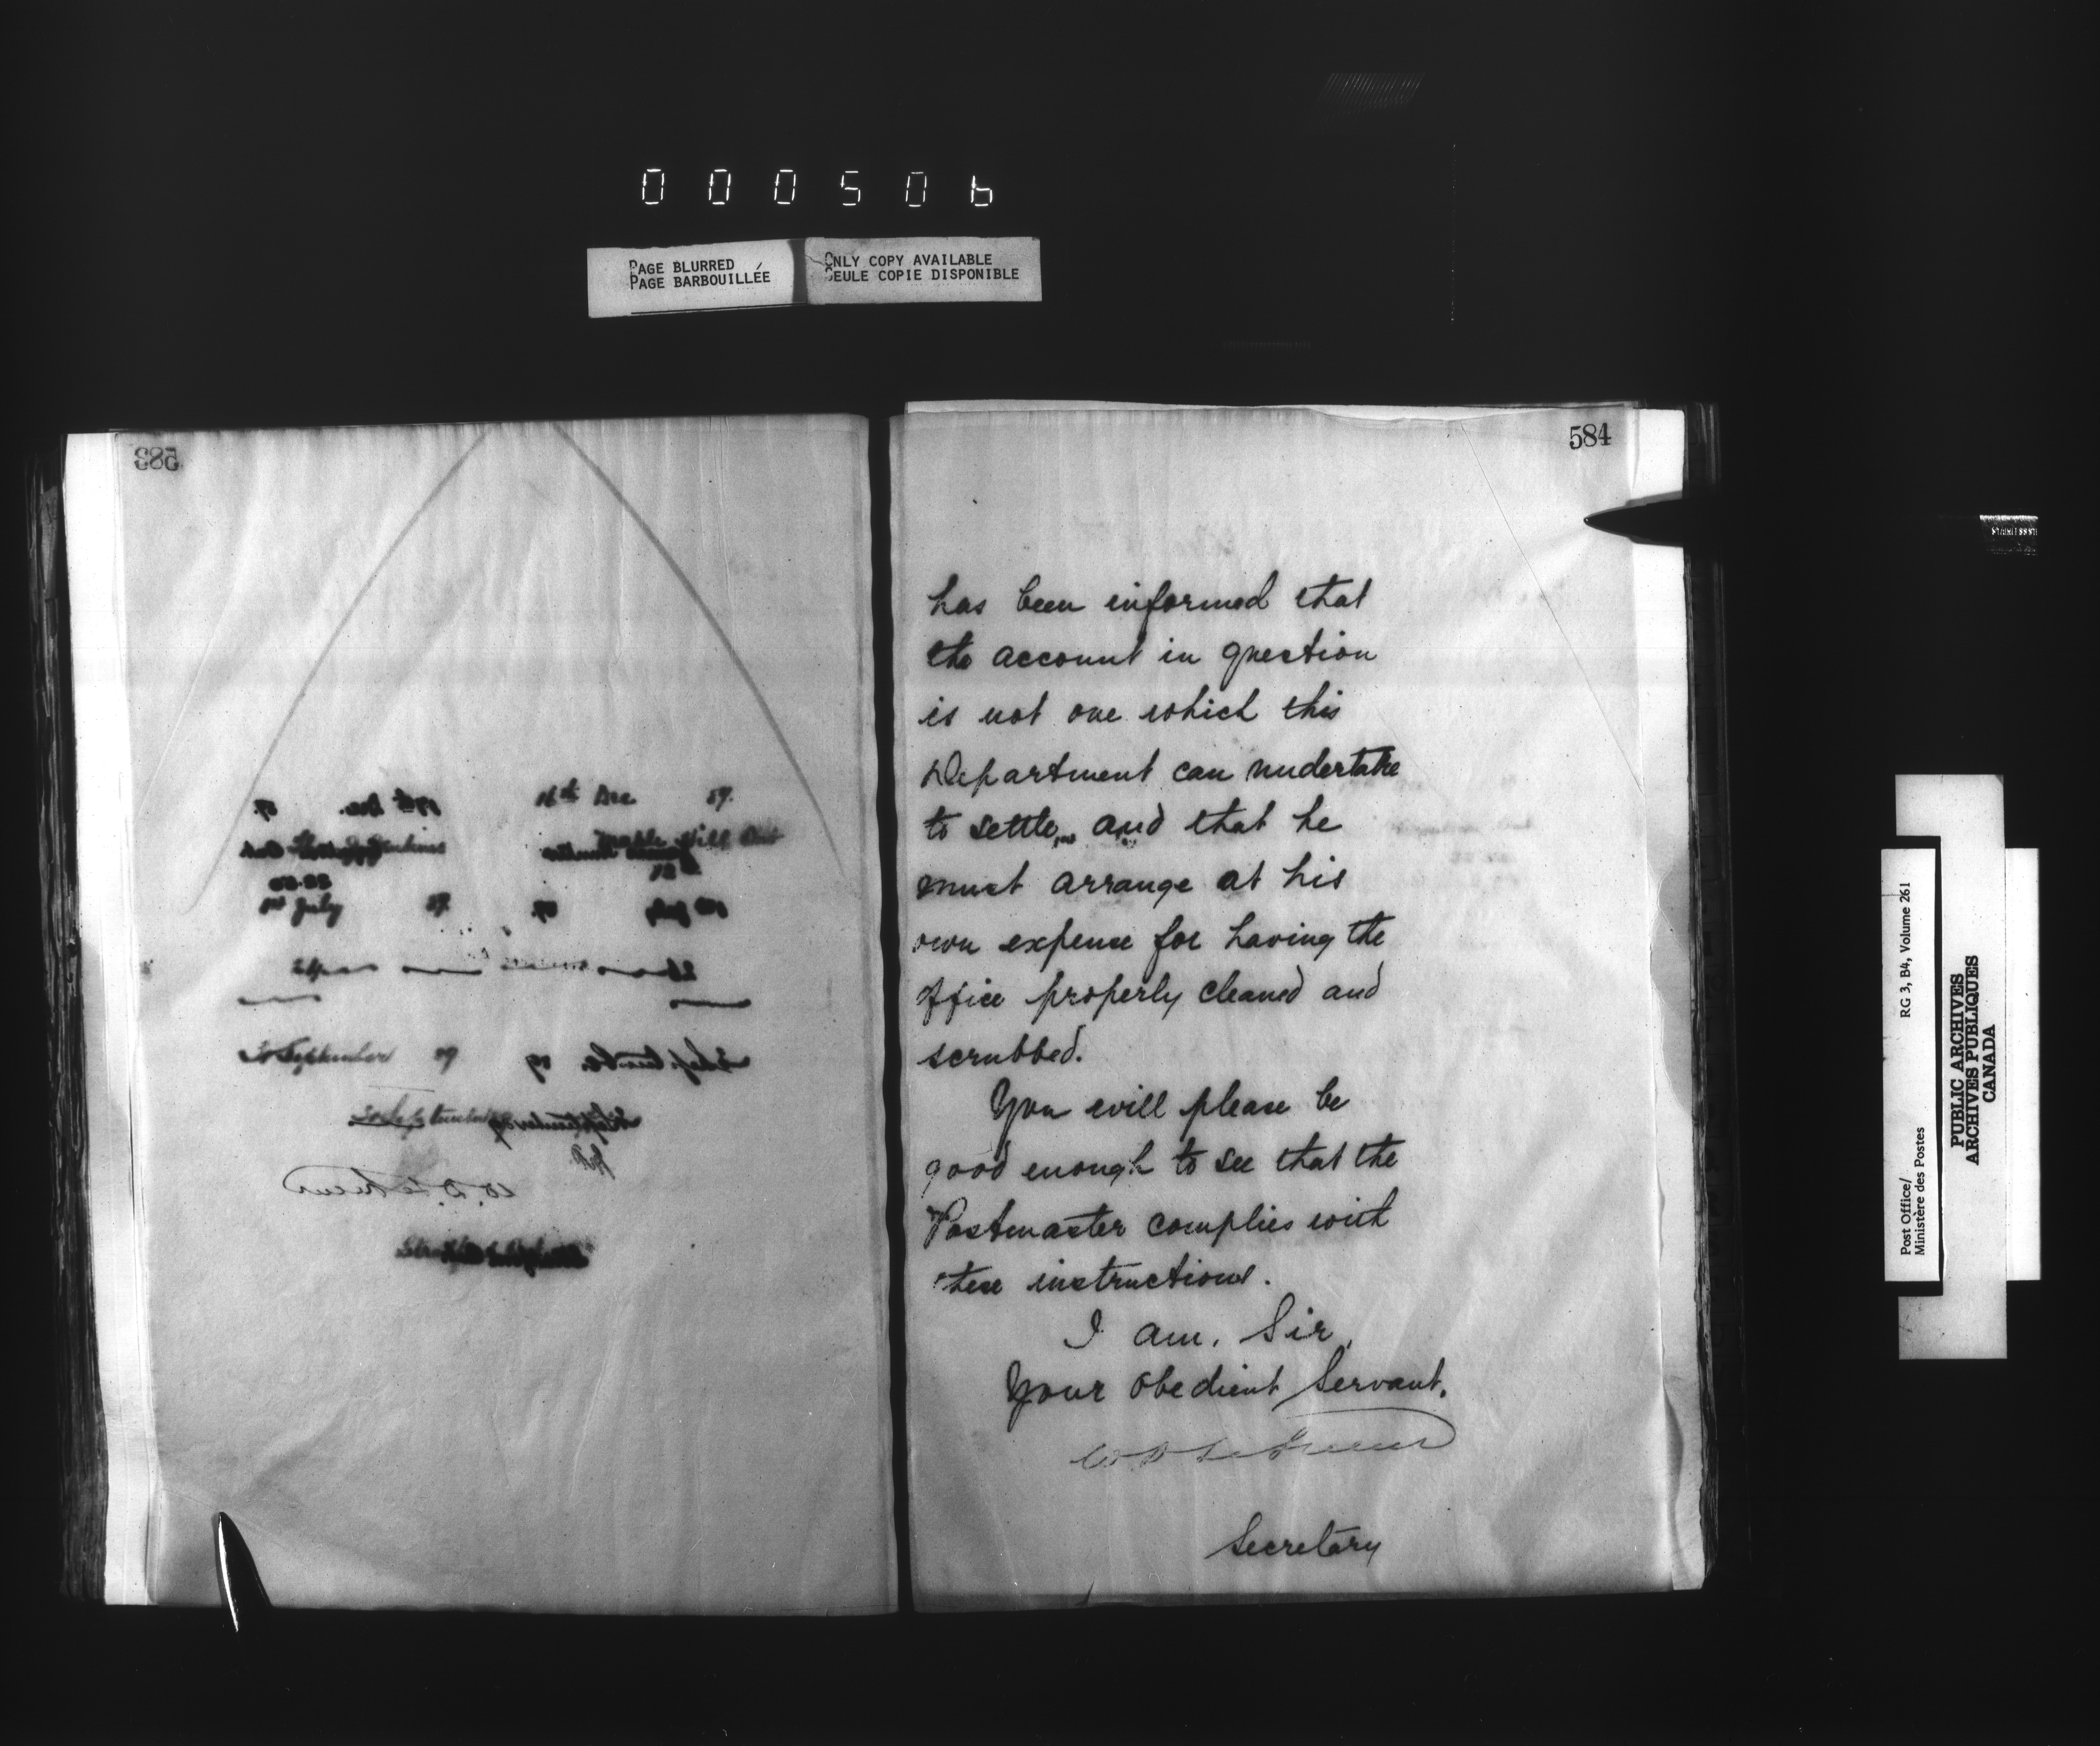 000506
PAGE BLURRED
PAGE BARBOUILLÉE
ONLY COPY AVAILABLE
SEULE COPIE DISPONIBLE
583
16th Dec 89.
1st July 89.
30 September 89
W. D. LeSueur
584
has been informed that
the account in question
is not one which this
Department can undertake
to settle, and that he
must arrange at his
own expense for having the
office properly cleaned and
scrubbed.
You will please be
good enough to see that the
Postmaster complies with
these instructions.
I am, Sir,
Your obedient Servant,
W D LeSueur
Secretary
Post Office/
Ministère des Postes
RG 3, B4, Volume 261
PUBLIC ARCHIVES
ARCHIVES PUBLIQUES
CANADA